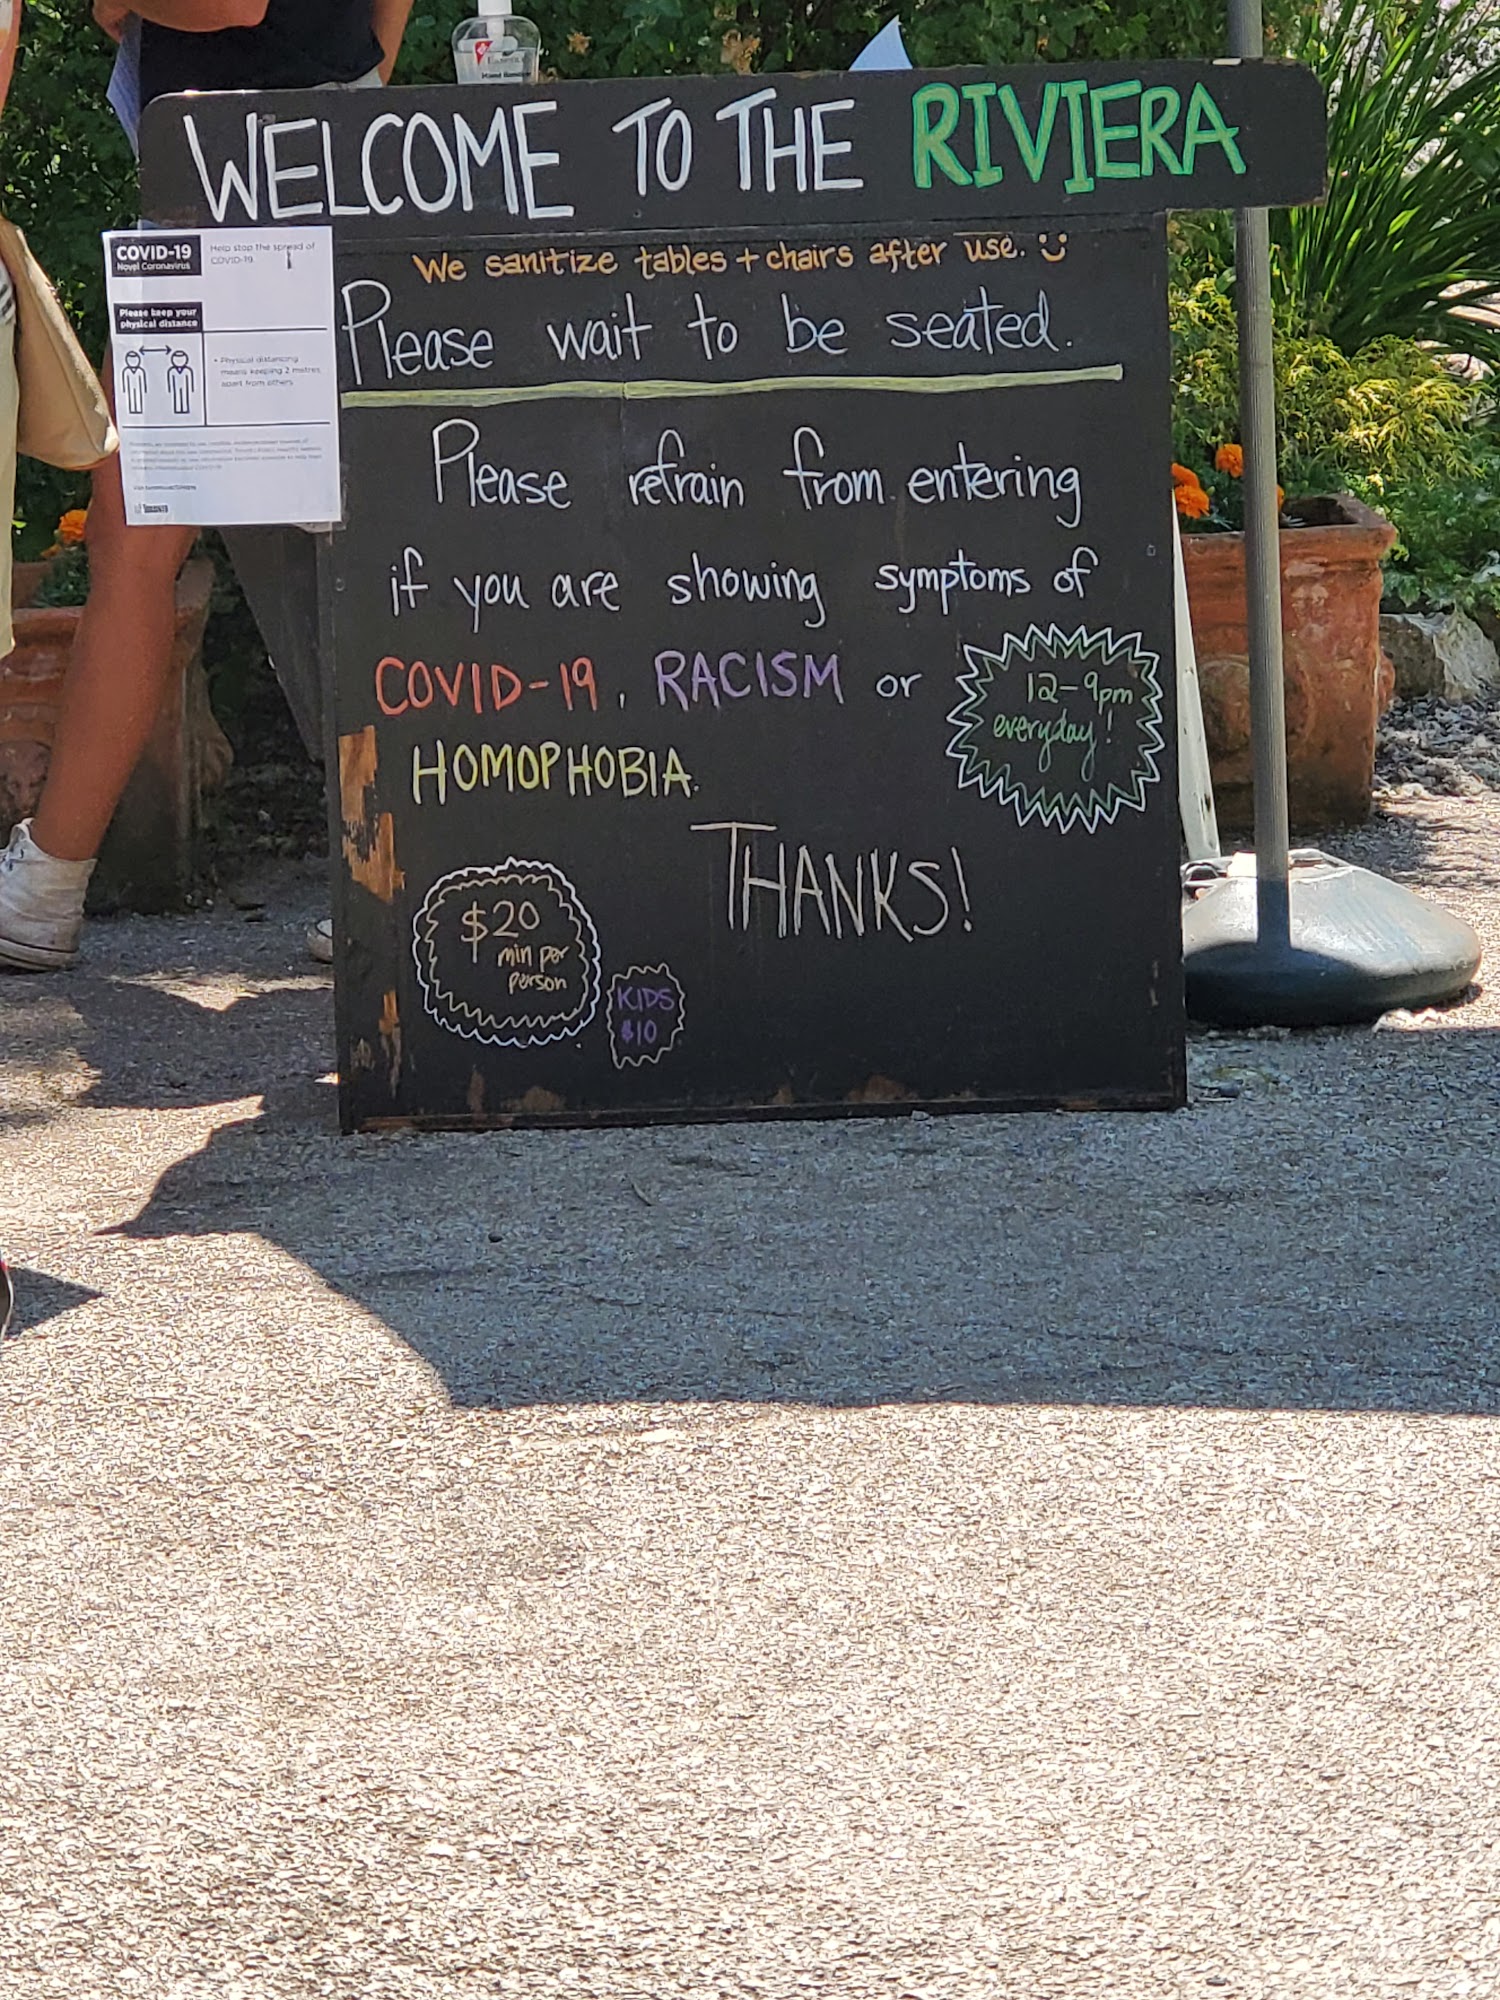 WELCOME TO THE RIVIERA
We sanitize tables + chairs after use.
Please wait to be seated.
Please refrain from entering
if you are showing symptoms of
COVID-19, RACISM or
HOMOPHOBIA.
THANKS!
12-9pm
everyday!
$20
min per
person
KIDS
$10
COVID-19
Novel Coronavirus
Help stop the spread of
COVID-19
Please keep your
physical distance
• Physical distancing
means keeping 2 metres
apart from others
Toronto
Hand